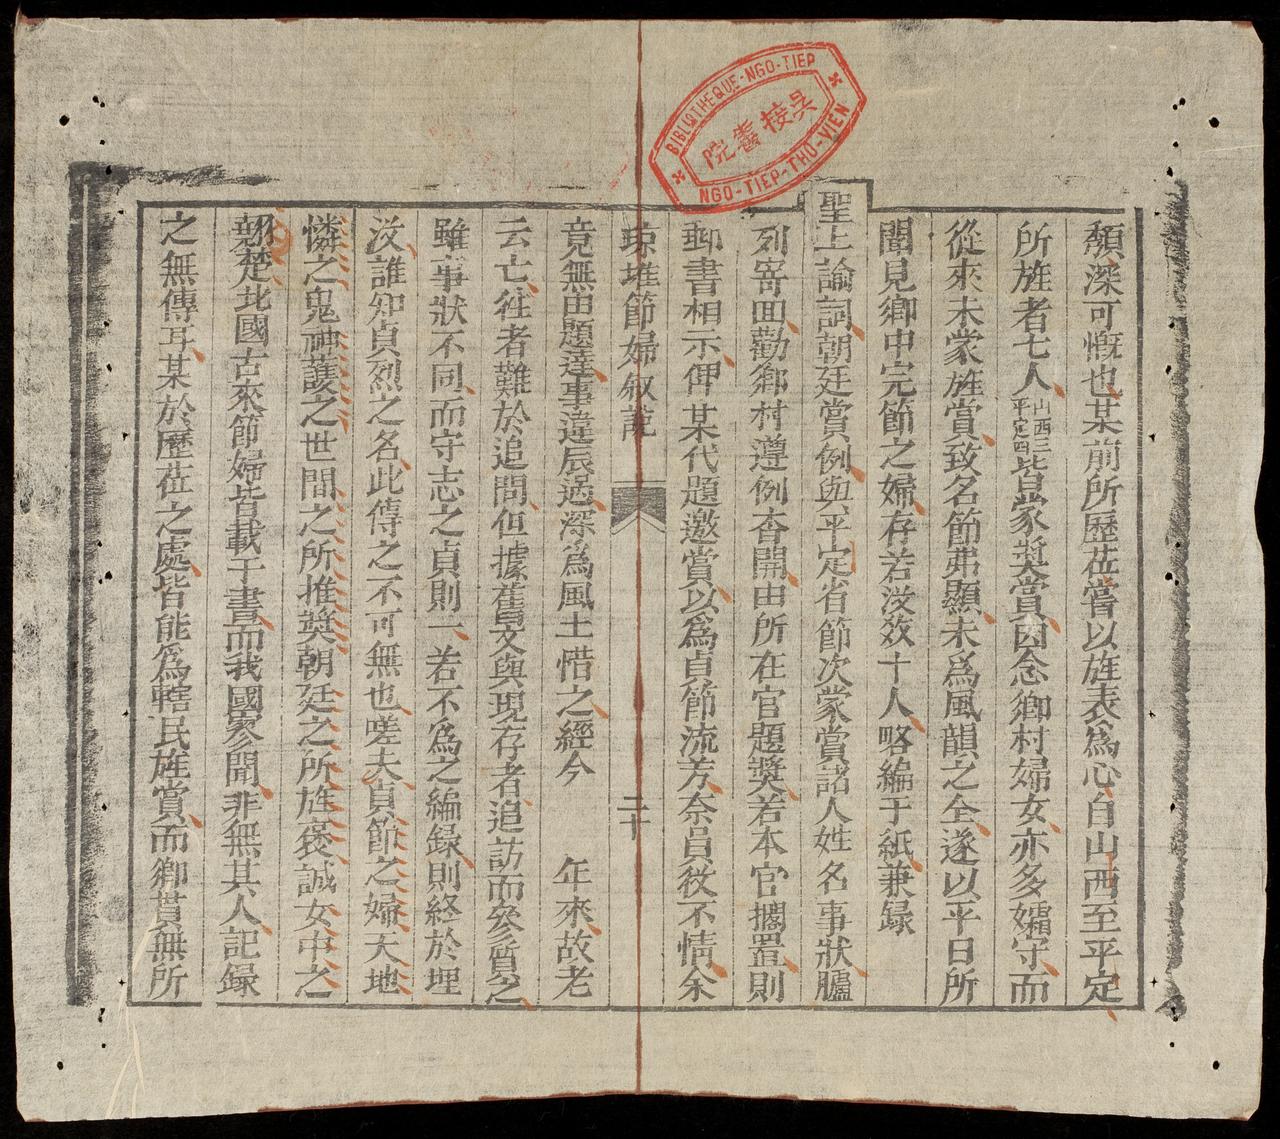 頽深可慨也某前所歷莅嘗以旌表爲心自山西至平定
所旌者七人山西三平定四皆蒙奬賞因念鄉村婦女亦多孀守而
從來未蒙旌賞致名節弗顯未爲風韻之全遂以平日所
聞見鄉中完節之婦存若没效十人略編于紙兼録
聖上諭詞朝廷賞例與平定省節次蒙賞諸人姓名事狀臚
列寄回勸鄉村遵例查開由所在官題奬若本官擱置則
郵書相示俾某代題邀賞以爲貞節流芳奈員役不情余
琼堆節婦叙説
二十
竟無由題達事違辰過深爲風土惜之經今 年來故老
云亡徃者難於追問但據舊文與現存者追訪而叅質之
雖事狀不同而守志之貞則一若不爲之編録則終於埋
没誰知貞烈之名此傳之不可無也嗟夫貞節之婦天地
憐之鬼神護之世間之所推奬朝廷之所旌褒誠女中之
翹楚北國古來節婦皆載于書而我國寥聞非無其人記録
之無傳耳某於歷莅之處皆能爲轄民旌賞而鄉貫無所
BIBLIOTHEQUE-NGO-TIEP
吳接書院
NGO-TIEP-THO-VIEN